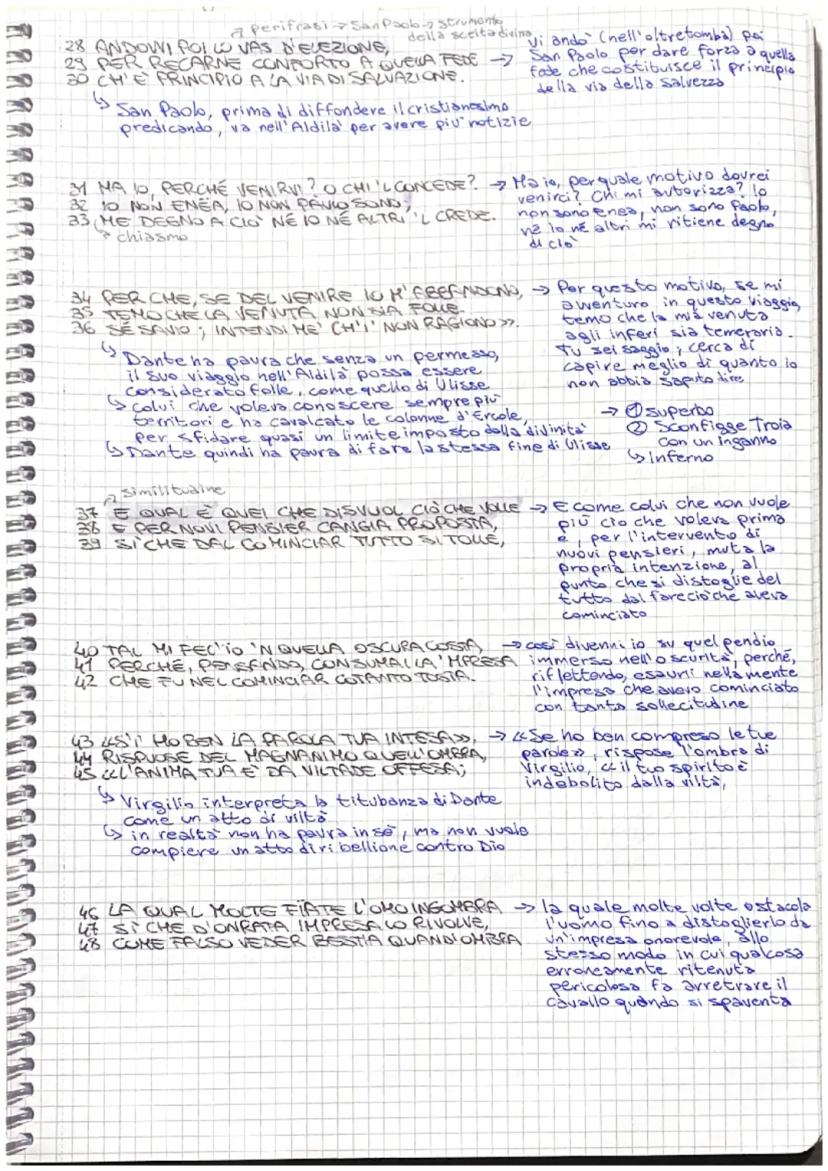 perifrasi → San Paolo → strumento
della scelta divina
28 ANDOVVI POI LO VAS D'ELEZIONE,
29 PER RECARNE CONFORTO A QUELLA FEDE →
30 CH'È PRINCIPIO A LA VIA DI SALVAZIONE.
Vi andò (nell'oltretomba) poi
San Paolo per dare forza a quella
fede che costituisce il principio
della via della salvezza
↳ San Paolo, prima di diffondere il cristianesimo
predicando, va nell'Aldilà per avere più notizie
31 MA IO, PERCHÉ VENIRVI? O CHI 'L CONCEDE? →
32 IO NON ENËA, IO NON PAULO SONO;
33 ME DEGNO A CIÒ NÉ IO NÉ ALTRI 'L CREDE.
chiasmo
Ma io, per quale motivo dovrei
venirci? Chi mi autorizza? Io
non sono Enea, non sono Paolo,
né io né altri mi ritiene degno
di ciò
34 PER CHE, SE DEL VENIRE IO M'ABBANDONO, →
35 TEMO CHE LA VENUTA NON SIA FOLLE.
36 SE' SAVIO; INTENDI ME' CH'I' NON RAGIONO».
Per questo motivo, se mi
avventuro in questo viaggio,
temo che la mia venuta
agli inferi sia temeraria.
Tu sei saggio; cerca di
capire meglio di quanto io
non abbia saputo dire
↳ Dante ha paura che senza un permesso,
il suo viaggio nell'Aldilà possa essere
considerato folle, come quello di Ulisse
↳ colui che voleva conoscere sempre più
territori e ha cavalcato le colonne d'Ercole,
per sfidare quasi un limite imposto dalla divinità
↳ Dante quindi ha paura di fare la stessa fine di Ulisse
→ ① superbo
② Sconfigge Troia
con un inganno
↳ Inferno
similitudine
37 E QUAL È QUEI CHE DISVUOL CIÒ CHE VOLLE →
38 E PER NOVI PENSIER CANGIA PROPOSTA,
39 SÌ CHE DAL COMINCIAR TUTTO SI TOLLE,
E come colui che non vuole
più ciò che voleva prima
e, per l'intervento di
nuovi pensieri, muta la
propria intenzione, al
punto che si distoglie del
tutto dal fare ciò che aveva
cominciato
40 TAL MI FEC'ÏO 'N QUELLA OSCURA COSTA, →
41 PERCHÉ, PENSANDO, CONSUMAI LA 'MPRESA
42 CHE FU NEL COMINCIAR COTANTO TOSTA.
così divenni io su quel pendio
immerso nell'oscurità, perché,
riflettendo, esaurii nella mente
l'impresa che avevo cominciato
con tanta sollecitudine
43 «S'I' HO BEN LA PAROLA TUA INTESA», →
44 RISPUOSE DEL MAGNANIMO QUELL'OMBRA,
45 «L'ANIMA TUA È DA VILTADE OFFESA;
«Se ho ben compreso le tue
parole», rispose l'ombra di
Virgilio, «il tuo spirito è
indebolito dalla viltà,
↳ Virgilio interpreta la titubanza di Dante
come un atto di viltà
↳ in realtà non ha paura in sé, ma non vuole
compiere un atto di ribellione contro Dio
46 LA QUAL MOLTE FÏATE L'OMO INGOMBRA →
47 SÌ CHE D'ONRATA IMPRESA LO RIVOLVE,
48 COME FALSO VEDER BESTIA QUAND'OMBRA
la quale molte volte ostacola
l'uomo fino a distoglierlo da
un'impresa onorevole, allo
stesso modo in cui qualcosa
erroneamente ritenuta
pericolosa fa arretrare il
cavallo quando si spaventa